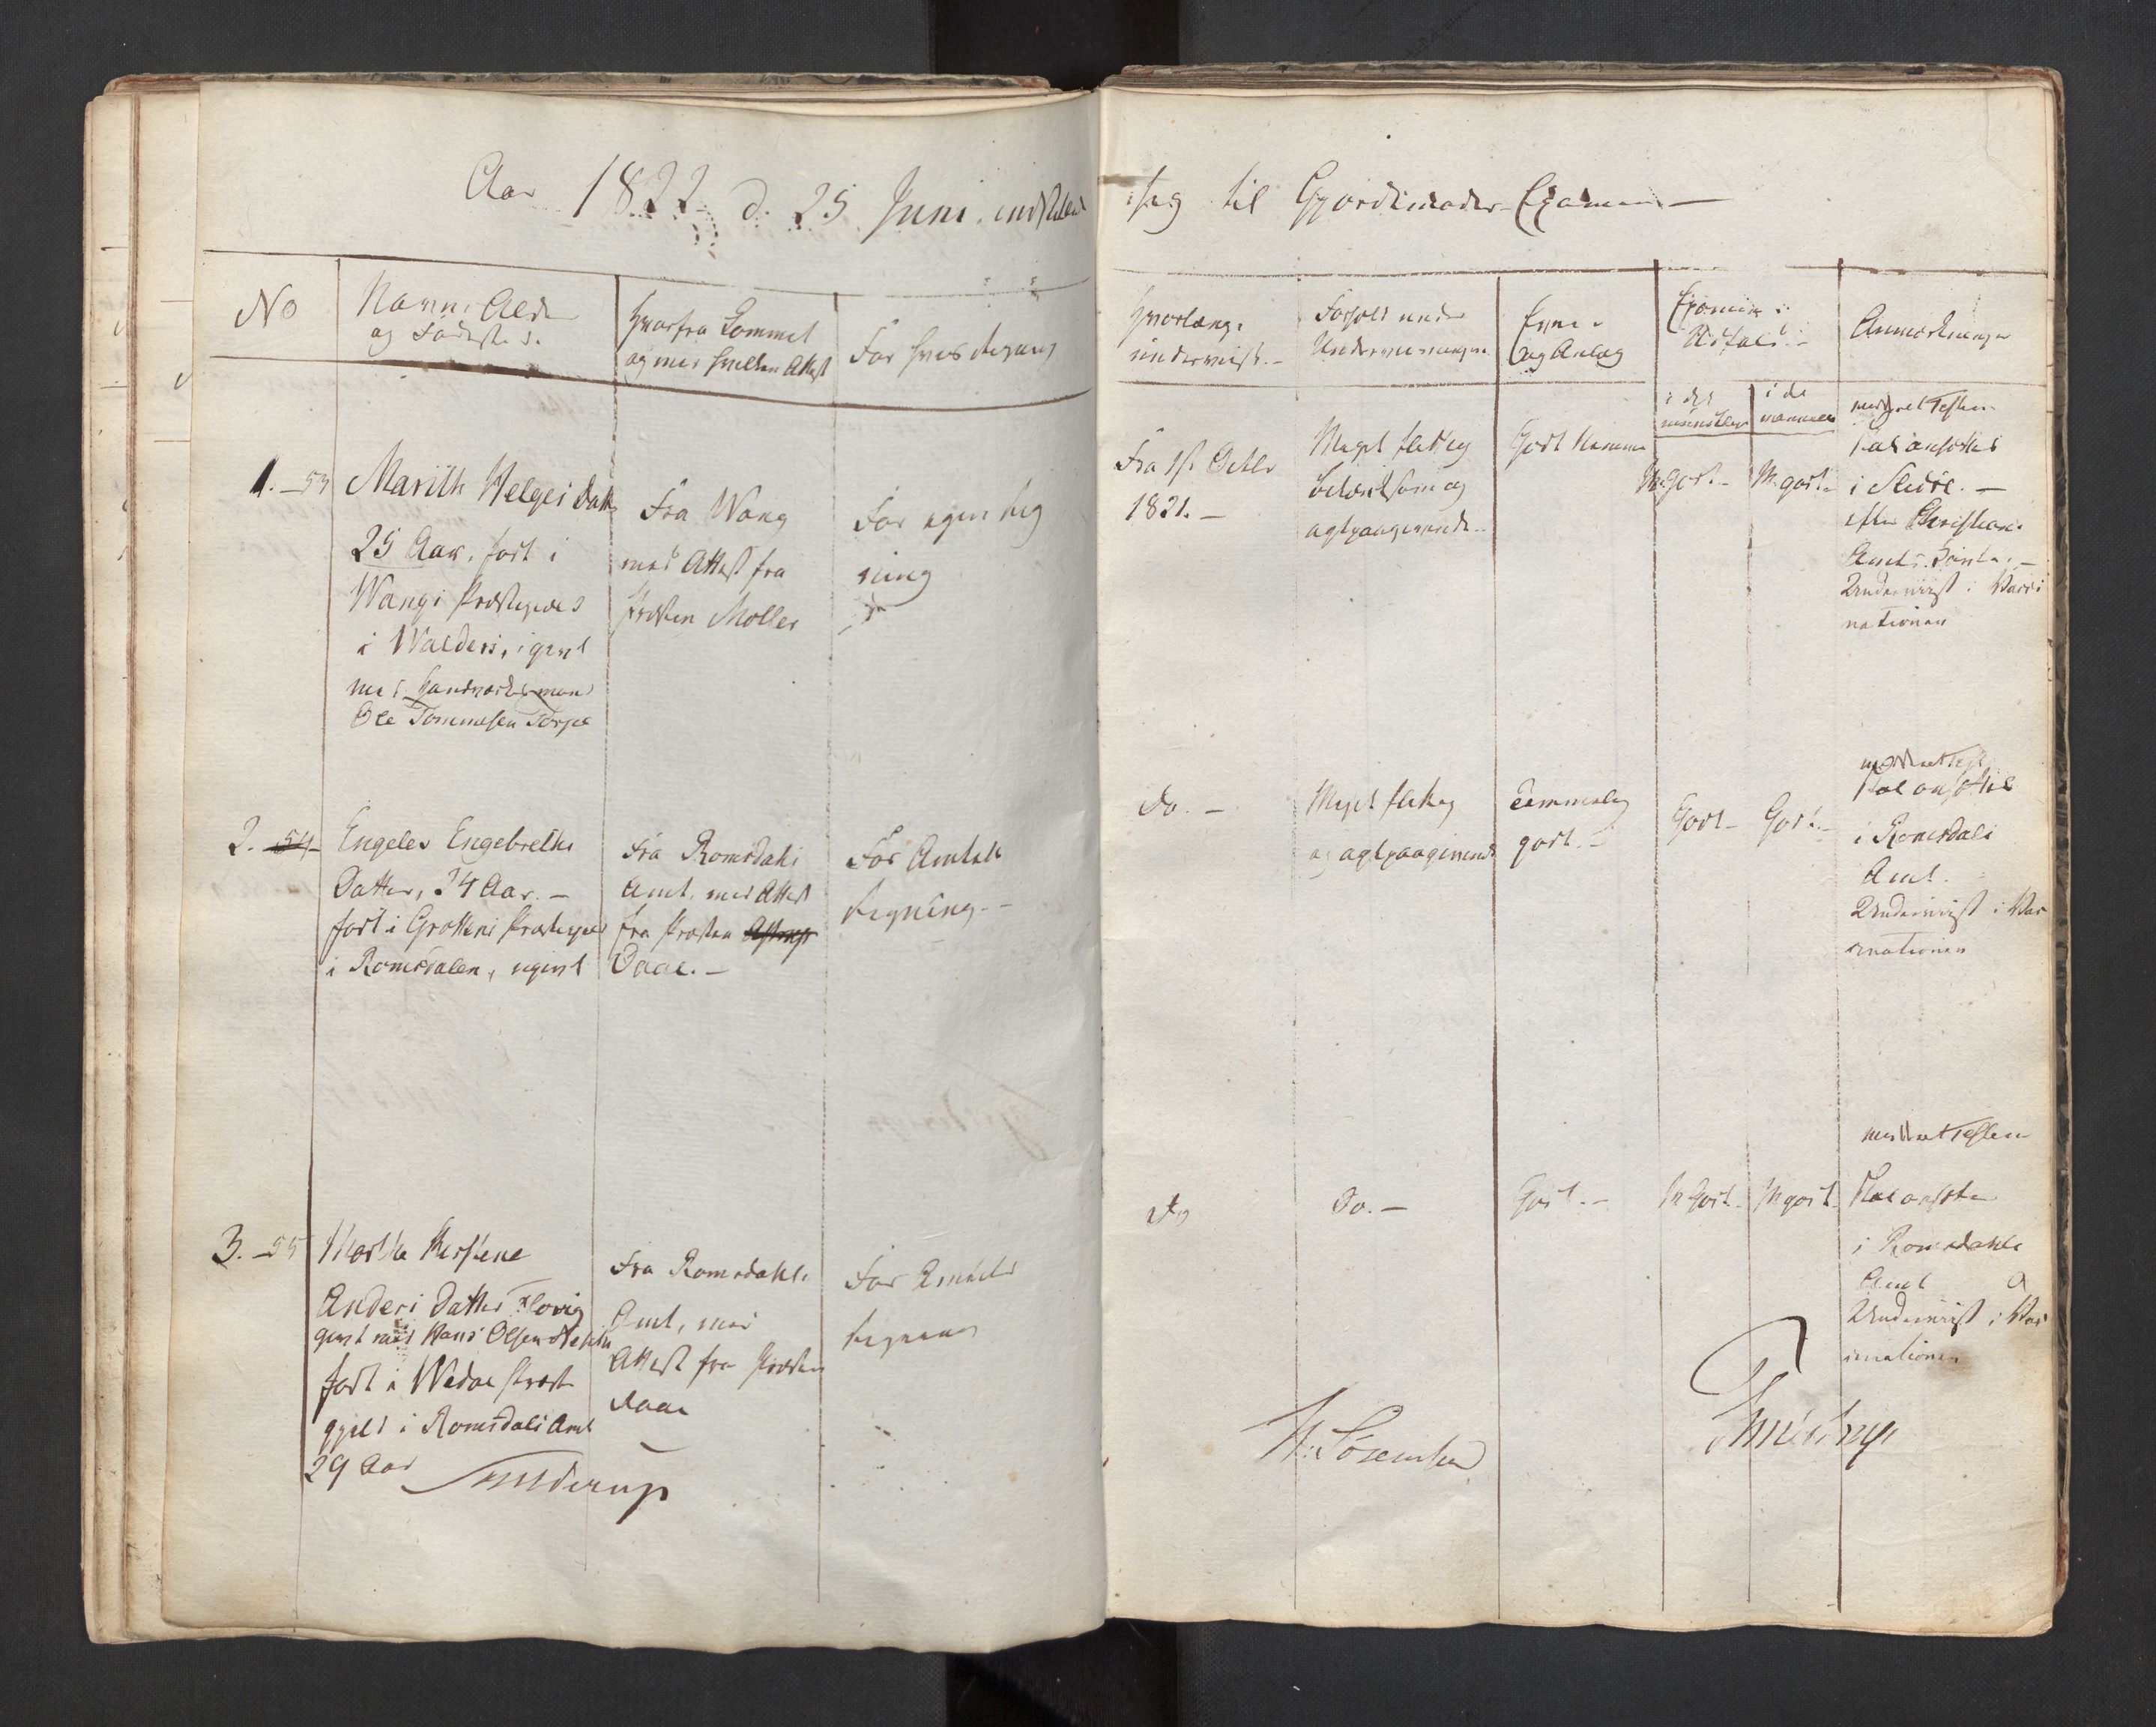 Aar 1822 d. 25 Juni indstillede
sig til Gjordemoder-Examen —
No
Navn, Alder
og Fødested.
Hvorfra kommet
og med hvilken Attest
For hvis Regning
Hvorlænge
underviist. –
Forhold under
Underviisningen
Evne
og Anlæg
Examens
Udfald. –
Anmerkninger
i det
mundtlige
i de
1. – 53
Marith Helges datter
25 Aar, født i
Wangs Præstegield
i Walders, givt
med Haandværksmand
Ole Tommesen
Fra Wang
med Attest fra
Præsten Møller
For egen Reg
ning
Fra 1st Octbr
1821. –
Meget flittig
og
agtpaagivende.
Godt Nemme
M. godt. –
M. godt. –
ansættes
i Slidre. –
efter Christians
Amts
Underviist i Vacci
nationen
2. – 54
Engeles Engebrethe
Datter, 34 Aar. –
født i Grøttens Præstegield
i Romsdalen, ugivt
Fra Romsdals
Amt, med Attest
fra Præsten Astrup
Daae. –
For Amtets
Regning. –
Do. –
Meget flittig
og agtpaagivende
Temmelig
godt. –
Godt –
Godt. –
skal ansættes
i Romsdals
Amt.
Underviist i Vac
cinationen
3. – 55
Marthe Kirstine
Anders Datter
givt med Hans Olsen
født i Wedøe Præste
gjeld i Romsdals Amt
29 Aar
Fra Romsdahls
Amt, med
Attest fra Præsten
Daae
For Amtets
Regning
Do
Do. –
Godt. –
M Godt –
M godt –
Skal ansættes
i Romsdahls
Amt
Underviist i Vac
cinationen
H: Sörensen